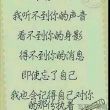 我听不到你的声音
看不到你的身影
得不到你的消息
即使忘了自己
我也会记得自己对你